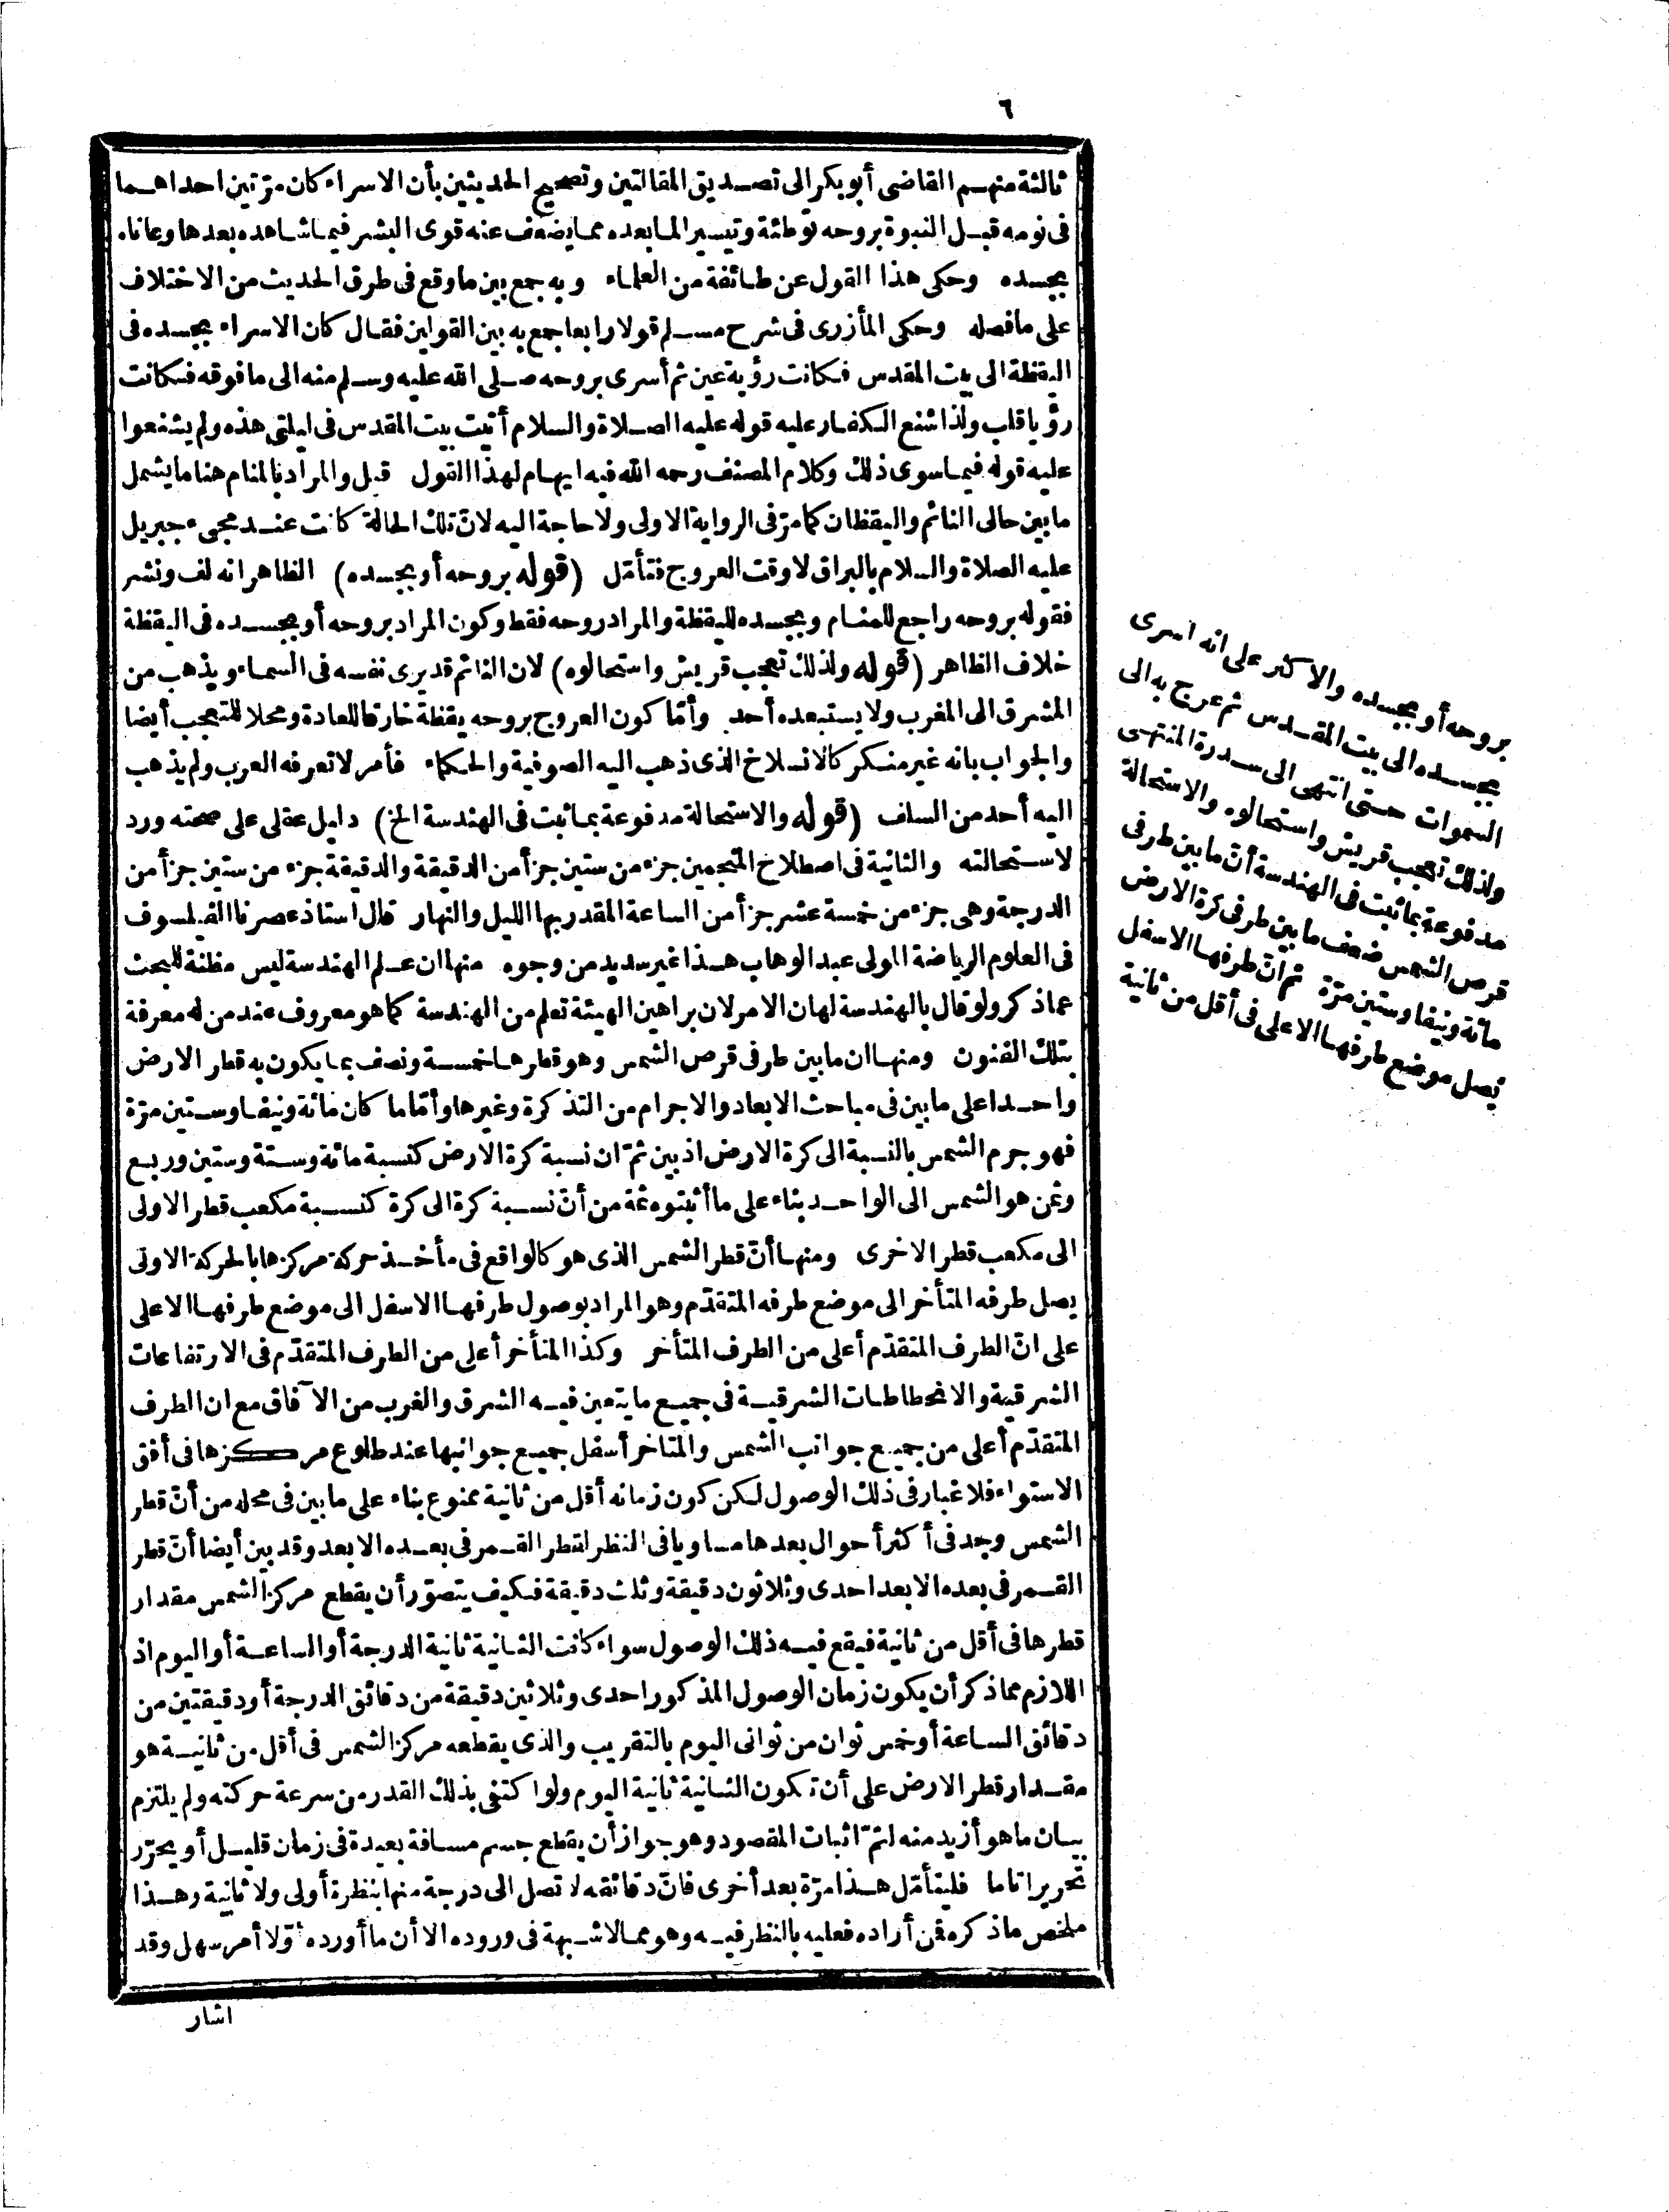 ٦
ثالثة منهم القاضى أبو بكر الى تصديق المقالتين وتصحيح الحديثين بأن الاسراء كان مرّتين احداهما
فى نومه قبل النبوة بروحه توطئة وتيسيرا لما بعده مما يضعف عنه قوى البشر فيما شاهده بعدها وعاناه
بجسده وحكى هذا القول عن طائفة من العلماء وبه جمع بين ما وقع فى طرق الحديث من الاختلاف
على ما فصله وحكى المأزرى فى شرح مسلم قولا رابعا جمع به بين القولين فقال كان الاسراء بجسده فى
اليقظة الى بيت المقدس فكانت رؤية عين ثم أسرى بروحه صلى الله عليه وسلم منه الى ما فوقه فكانت
رؤيا قلب ولذا شنع الكفار عليه قوله عليه الصلاة والسلام أتيت بيت المقدس فى ليلتى هذه ولم يشنعوا
عليه قوله فيما سوى ذلك وكلام المصنف رحمه الله فيه ايهام لهذا القول قيل والمراد بالمنام هنا ما يشمل
ما بين حالى النائم واليقظان كما مرّ فى الرواية الاولى ولا حاجة اليه لانّ تلك الحالة كانت عند مجىء جبريل
عليه الصلاة والسلام بالبراق لا وقت العروج فتأمّل (قوله بروحه أو بجسده) الظاهر انه لف ونشر
فقوله بروحه راجع للمنام وبجسده لليقظة والمراد روحه فقط وكون المراد بروحه أو بجسده فى اليقظة
خلاف الظاهر (قوله ولذلك تعجب قريش واستحالوه) لان النائم قد يرى نفسه فى السماء ويذهب من
المشرق الى المغرب ولا يستبعده أحد وأمّا كون العروج بروحه يقظة خارقا للعادة ومحلا للتعجب أيضا
والجواب بانه غير منكر كالانسلاخ الذى ذهب اليه الصوفية والحكماء فأمر لا تعرفه العرب ولم يذهب
اليه أحد من السلف (قوله والاستحالة مدفوعة بما ثبت فى الهندسة الخ) دليل عقلى على صحته ورد
لاستحالته والثانية فى اصطلاح المنجمين جزء من ستين جزأ من الدقيقة والدقيقة جزء من ستين جزأ من
الدرجة وهى جزء من خمسة عشر جزأ من الساعة المقدر بها الليل والنهار قال استاذ عصرنا الفيلسوف
فى العلوم الرياضة المولى عبد الوهاب هذا غير سديد من وجوه منها ان علم الهندسة ليس مظنة للبحث
عما ذكر ولو قال بالهندسة لهان الامر لان براهين الهيئة تعلم من الهندسة كما هو معروف عند من له معرفة
بتلك الفنون ومنها ان ما بين طرفى قرص الشمس وهو قطرها خمسة ونصف بما يكون به قطر الارض
واحدا على ما بين فى مباحث الابعاد والاجرام من التذكرة وغيرها وأمّا ما كان مائة ونيفا وستين مرّة
فهو جرم الشمس بالنسبة الى كرة الارض اذ بين ثمّ ان نسبة كرة الارض كنسبة مائة وستة وستين وربع
وثمن هو الشمس الى الواحد بناء على ما أثبتوه ثمة من أنّ نسبة كرة الى كرة كنسبة مكعب قطر الاولى
الى مكعب قطر الاخرى ومنها أنّ قطر الشمس الذى هو كالواقع فى مأخذ حركة مركزها بالحركة الاولى
يصل طرفه المتأخر الى موضع طرفه المتقدّم وهو المراد بوصول طرفها الاسفل الى موضع طرفها الاعلى
على انّ الطرف المتقدّم أعلى من الطرف المتأخر وكذا المتأخر أعلى من الطرف المتقدّم فى الارتفاعات
الشرقية والانحطاطات الشرقية فى جميع ما يتعين فيه الشرق والغرب من الآفاق مع ان الطرف
المتقدّم أعلى من جميع جوانب الشمس والمتاخر أسفل جميع جوانبها عند طلوع مركزها فى أفق
الاستواء فلا غبار فى ذلك الوصول لكن كون زمانه أقل من ثانية ممنوع بناء على ما بين فى محله من أنّ قطر
الشمس وجد فى أكثر أحوال بعدها مساويا فى النظر لقطر القمر فى بعده الابعد وقد بين أيضا أنّ قطر
القمر فى بعده الابعد احدى وثلاثون دقيقة وثلث دقيقة فكيف يتصوّر أن يقطع مركز الشمس مقدار
قطرها فى أقل من ثانية فيقع فيه ذلك الوصول سواء كانت الثانية ثانية الدرجة أو الساعة أو اليوم اذ
اللازم مما ذكر أن يكون زمان الوصول المذكور احدى وثلاثين دقيقة من دقائق الدرجة أو دقيقتين من
دقائق الساعة أو خمس ثوان من ثوانى اليوم بالتقريب والذى يقطعه مركز الشمس فى أقل من ثانية هو
مقدار قطر الارض على أن تكون الثانية ثانية اليوم ولو اكتفى بذلك القدر من سرعة حركته ولم يلتزم
بيان ما هو أزيد منه لتمّ اثبات المقصود وهو جواز أن يقطع جسم مسافة بعيدة فى زمان قليل أو يحرّر
تحريرا تاما فليتأمّل هذا مرّة بعد أخرى فانّ دقائقه لا تصل الى درجة منها بنظرة أولى ولا ثانية وهذا
ملخص ما ذكره فمن أراده فعليه بالنظر فيه وهو مما لا شبهة فى وروده الا أن ما أورده أوّلا أمر سهل وقد
اشار
بروحه أو بجسده والاكثر على انه اسرى
بجسده الى بيت المقدس ثم عرج به الى
السموات حتى انتهى الى سدرة المنتهى
ولذلك تعجب قريش واستحالوه والاستحالة
مدفوعة بما ثبت فى الهندسة أنّ ما بين طرفى
قرص الشمس ضعف ما بين طرفى كرة الارض
مائة ونيفا وستين مرّة ثم انّ طرفها الاسفل
يصل موضع طرفها الاعلى فى أقل من ثانية